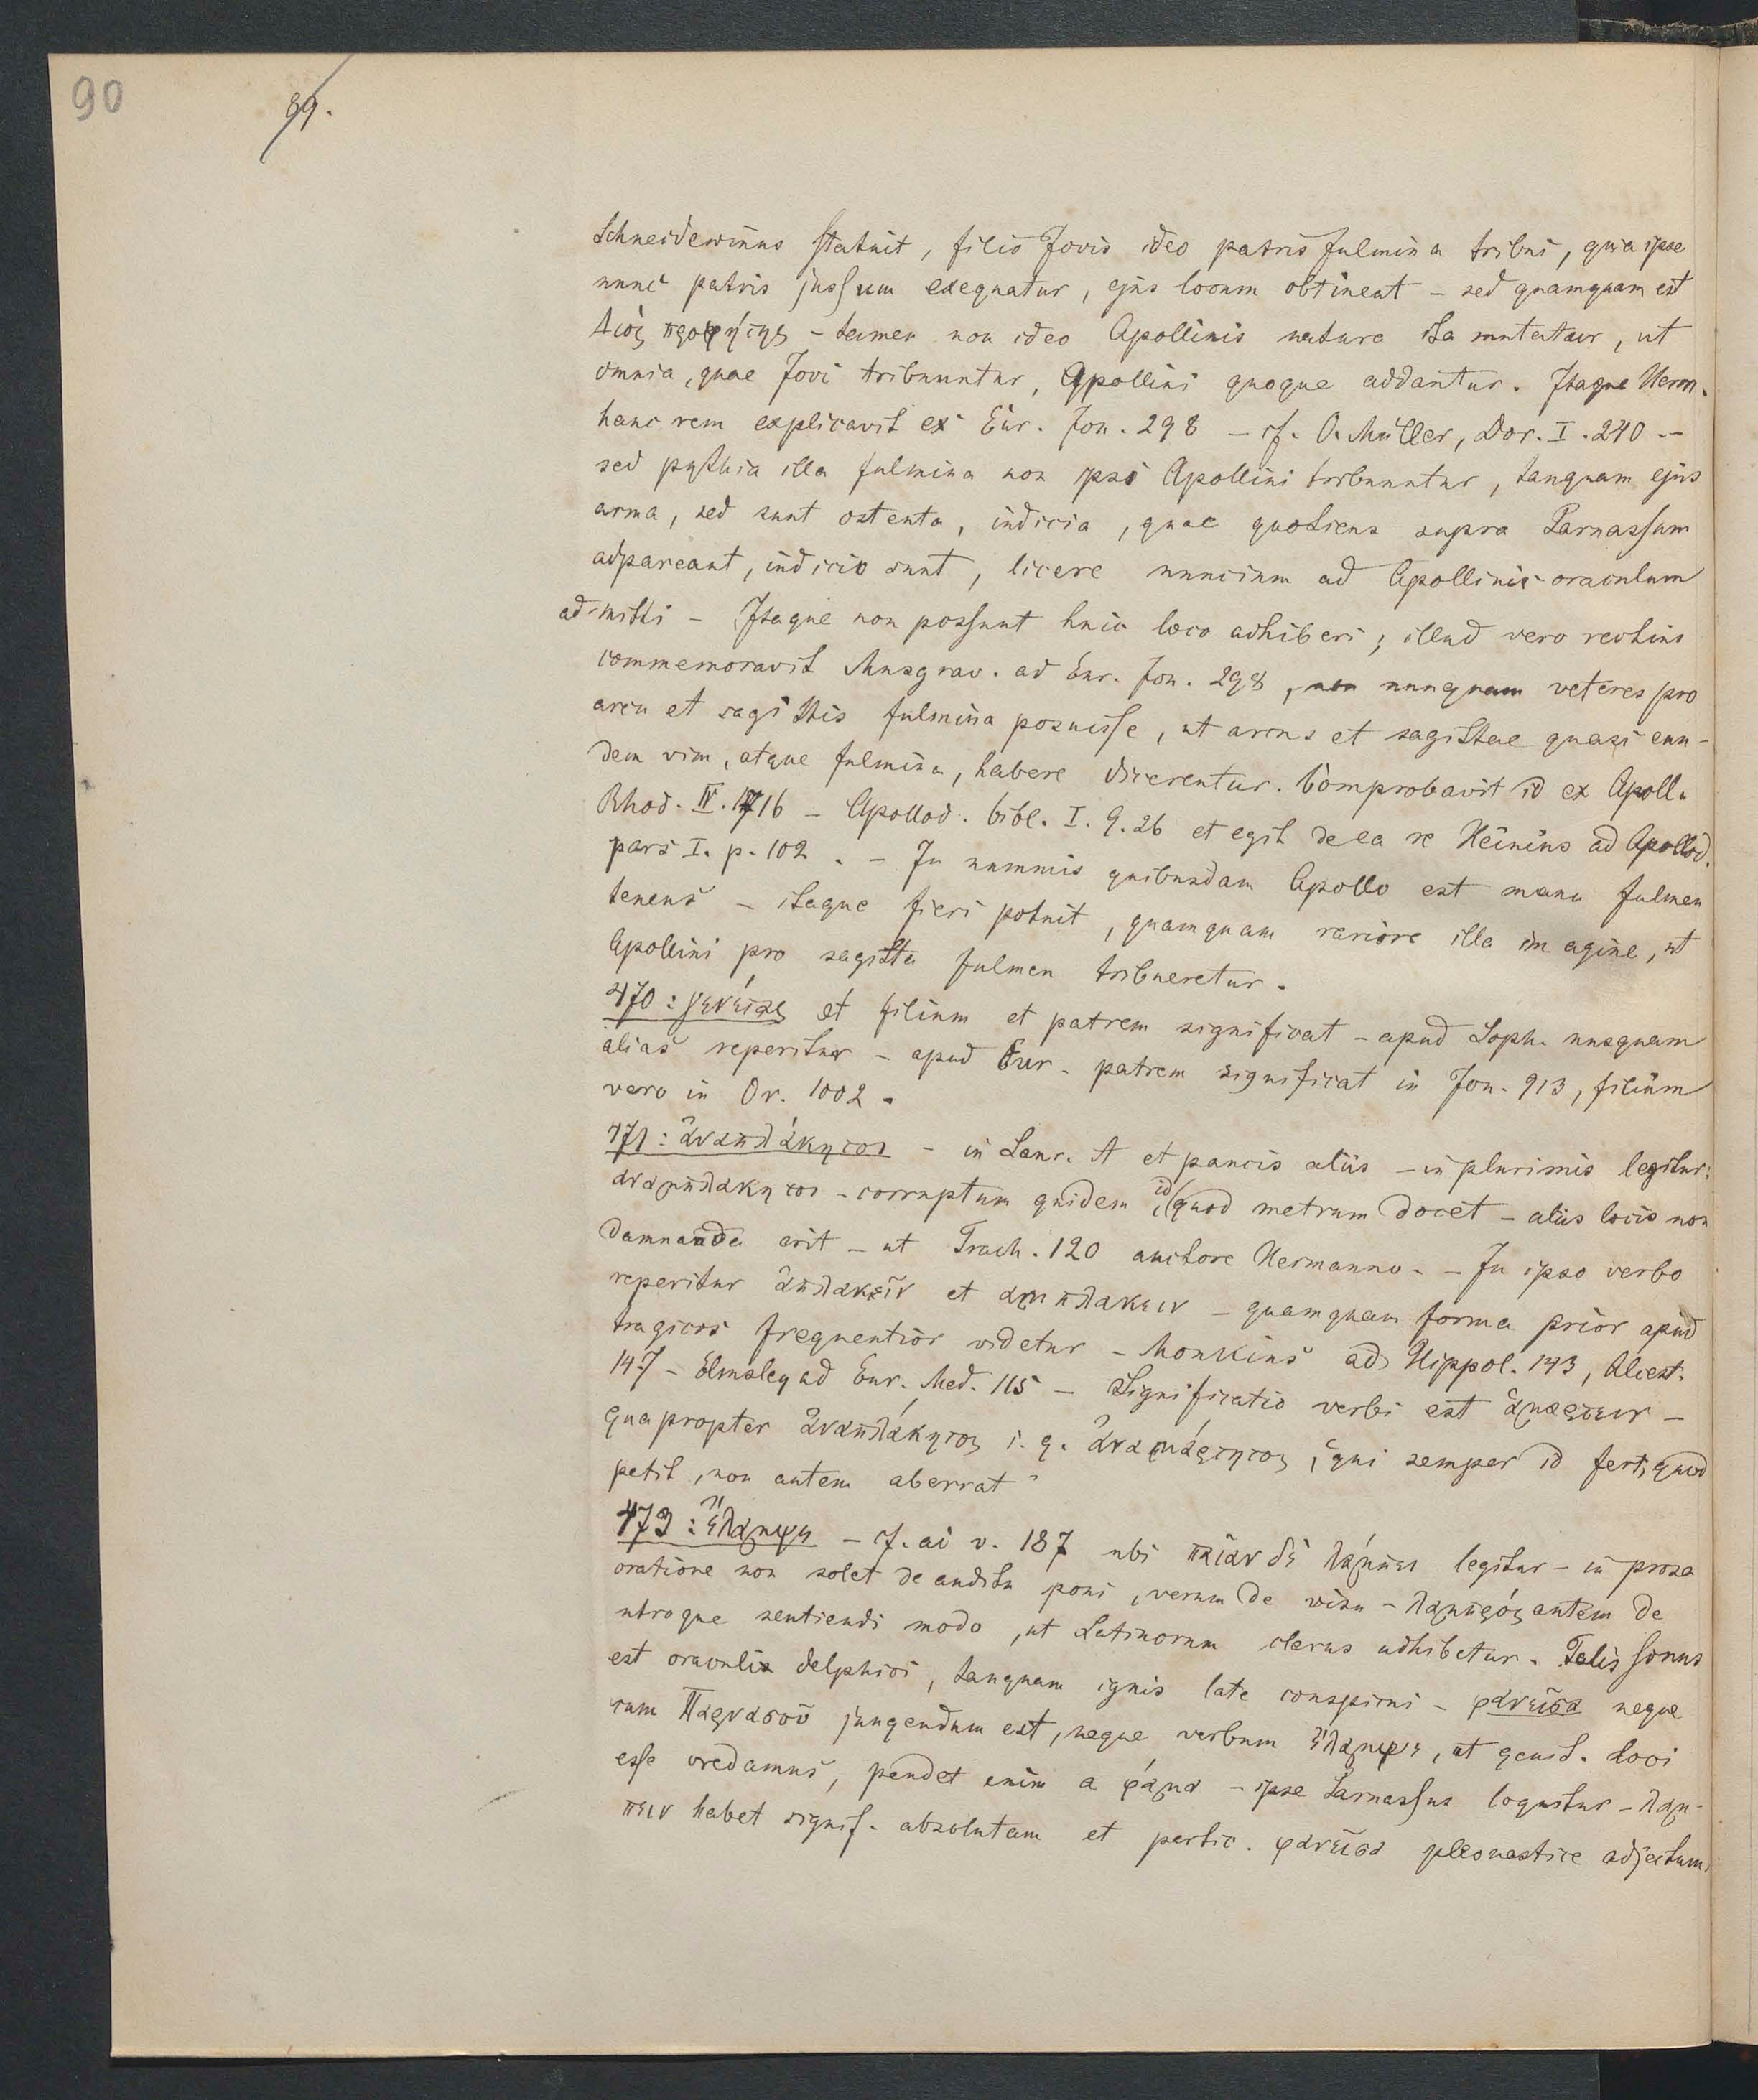 90
89.
Schneidewinns statuit, filio Jovis ideo patris fulmina tribui, quia ipse
nunc patris jussum exequatur, ejus locum obtineat – sed quamquam est
Διὸς προφήτης – tamen non ideo Apollinis natura ita mutatur, ut
omnia, quae Jovi tribuuntur, Apollini quoque addantur. Itaque Herm.
hanc rem explicavit ex Eur. Jon. 298 – cf. O. Müller, Dor. I. 240 –
sed pythia illa fulmina non ipsi Apollini tribuuntur, tanquam ejus
arma, sed sunt ostenta, indicia, quae quotiens supra Parnassum
adpareant, indicio sunt, licere nuncium ad Apollinis oraculum
admitti – Itaque non possunt huic loco adhiberi; illud vero rectius
commemoravit Musgrav. ad Eur. Jon. 298, non nunquam veteres pro
arcu et sagittis fulmina posuisse, ut arcus et sagittae quasi ean-
dem vim, atque fulmina, habere dicerentur. Comprobavit id ex Apoll.
Rhod. IV. 1716 – Apollod. bibl. I. 9. 26 et egit de ea re Heinius ad Apollod.
pars I. p. 102. – In nummis quibusdam Apollo est manu fulmen
tenens – itaque fieri potuit, quamquam rariore illa imagine, ut
Apollini pro sagitta fulmen tribueretur.
470: γενέτας et filium et patrem significat – apud Soph. nusquam
alias reperitur – apud Eur. patrem significat in Jon. 913, filium
vero in Or. 1002.
471: ἀναπλάκητοι – in Laur. A et paucis aliis – in plurimis legitur:
αναμπλακητοι – corruptum quidem id, quod metrum docet – aliis locis non
damnanda erit – ut Trach. 120 auctore Hermanno. – In ipso verbo
reperitur ἀπλακεῖν et αμπλακειν – quamquam forma prior apud
tragicos frequentior videtur – Monkius ad Hippol. 143, Alcest.
147 – Elmsley ad Eur. Med. 115 – Significatio verbi est ἁμαρτειν –
quapropter ἀναπλάκητος i. q. ἀναμάρτητος, "qui semper id fert, quod
petit, non autem aberrat"
473: ἔλαμψε – cf. ad v. 187 ubi παίαν δὲ λάμπει legitur – in prosa
oratione non solet de auditu poni, verum de visu – λαμπρός autem de
utroque sentiendi modo, ut Latinorum clarus adhibetur. Talis sonus
est oraculis delphici, tanquam ignis late conspicui – φανεῖσα neque
cum Παρνασοῦ jungendum est, neque verbum ἔλαμψε, ut genit. loci
esse credamus, pendet enim a φάμα – ipse Parnassus loquitur – λαμ-
πειν habet signif. absolutam et partic. φανεῖσα pleonastice adjectum